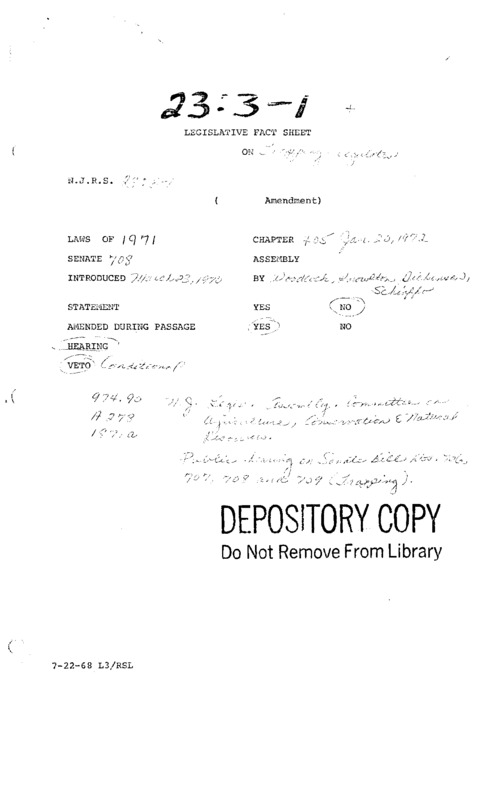 23:3-1
LEGISLATIVE FACT SHEET
ON Trapping
N.J.R.S. 23:3-1
( Amendment)
LAWS OF 1971 CHAPTER 405 Jan. 20, 1972
SENATE 708 ASSEMBLY
INTRODUCED March 23, 1970 BY Woodcock, Knowlton, Dickinson,
Schiaffo
STATEMENT YES NO
AMENDED DURING PASSAGE YES NO
HEARING
VETO Conditional
974.90 N.J. Legis. Assembly. Committee on
A 278 Agriculture, Conservation & Natural
1971a Resources.
Public hearing on Senate Bills Nos. 706,
707, 708 and 709 (Trapping).
DEPOSITORY COPY
Do Not Remove From Library
7-22-68 L3/RSL